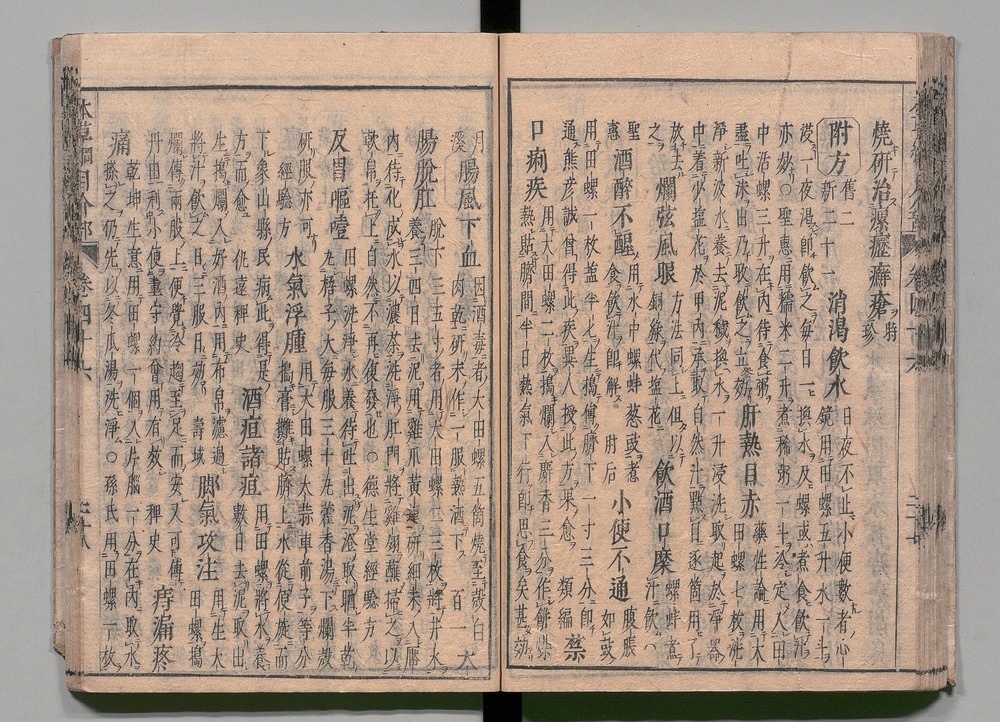 燒研治瘰癧癬瘡時珍
附方舊二新二十一消渴飲水日夜不止小便數者心鏡用田螺五升水一斗
浸一夜渴卽飲之每日一換水及螺或煮食飲汁
亦妙○聖惠用糯米二升煮稀粥一斗冷定入田
中活螺三升在內待食粥
盡吐沫出乃取飲之立效肝熱目赤藥性論用大田螺七枚洗
淨新汲水養去泥穢換水一升浸洗取起於淨器
中着少鹽花於甲內承取自然汁點目逐箇用了
放去之爛弦風眼方法同上但以銅綠代鹽花飲酒口糜螺蚌煮汁飲
聖惠酒醉不醒用水中螺蚌葱豉煮食飲汁卽解肘后小便不通腹脹如鼓
用田螺一枚鹽半匕生搗傅臍下一寸三分卽
通熊彦誠曾得此疾異人授此方果愈類編禁
口痢疾用大田螺二枚搗爛入麝香三分作餅烘
熱貼臍間半日熱氣下行卽思食矣甚效
月溪腸風下血因酒毒者大田螺五箇燒至殼白
肉乾研末作一服熱酒下百一大
腸脫肛脫下三五寸者用大田螺二三枚將井水
養三四日去泥用雞爪黃連研細末入厴
內待化成水以濃茶洗淨肛門將雞翎蘸掃之以
軟帛托上自然不再復發也德生堂經驗方
反胃嘔噎田螺洗淨水養待吐出泥澄取晒半乾
丸梧子大每服三十丸藿香湯下爛殼
研服亦可經驗方水氣浮腫用大田螺大蒜車前子等分
搗膏攤貼臍上水從便旋而
下象山縣民病此得是
方而愈仇遠稗史酒疸諸疸用田螺將水養數日去泥取出
生搗爛入好酒內用布帛濾過
將汁飲之日三服日效壽域脚氣攻注用生大田螺搗
爛傅兩股上便覺冷趨至足而安又可傅
丹田利小便董守約曾用有效稗史痔漏疼
痛乾坤生意用田螺一個入片腦一分在內取水
搽之仍先以冬瓜湯洗淨○孫氏用田螺一枚